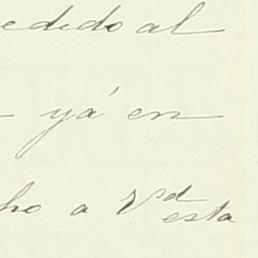 cedido al
yá en
ho a Vd esta